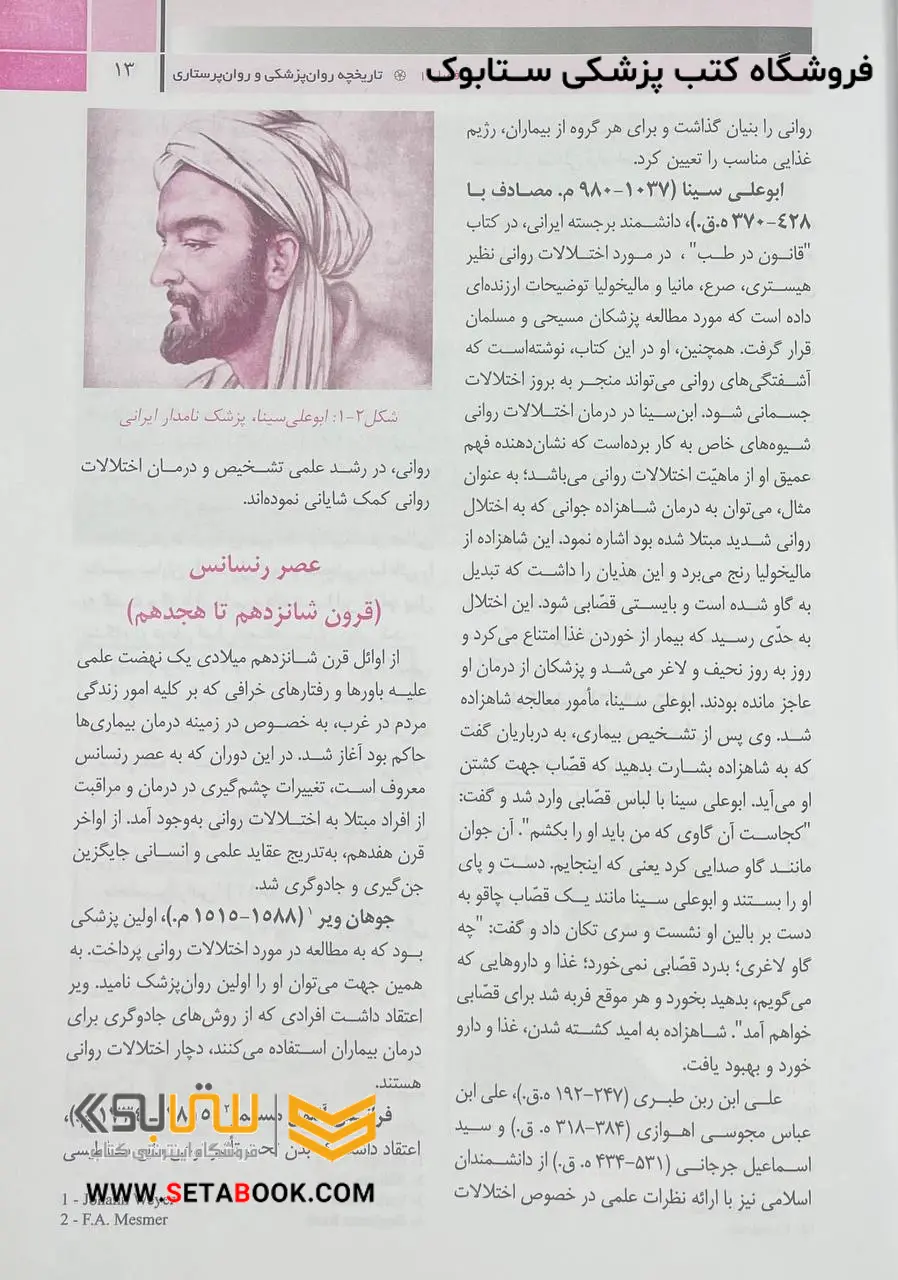 فروشگاه کتب پزشکی ستابوک
تاریخچه روان‌پزشکی و روان‌پرستاری
۱۳
روانی را بنیان گذاشت و برای هر گروه از بیماران، رژیم
غذایی مناسب را تعیین کرد.
ابوعلی سینا (۱۰۳۷-۹۸۰ م. مصادف با
۴۲۸-۳۷۰ ه.ق.)، دانشمند برجسته ایرانی، در کتاب
"قانون در طب" ، در مورد اختلالات روانی نظیر
هیستری، صرع، مانیا و مالیخولیا توضیحات ارزنده‌ای
داده است که مورد مطالعه پزشکان مسیحی و مسلمان
قرار گرفت. همچنین، او در این کتاب، نوشته‌است که
آشفتگی‌های روانی می‌تواند منجر به بروز اختلالات
جسمانی شود. ابن‌سینا در درمان اختلالات روانی
شیوه‌های خاص به کار برده‌است که نشان‌دهنده فهم
عمیق او از ماهیّت اختلالات روانی می‌باشد؛ به عنوان
مثال، می‌توان به درمان شاهزاده جوانی که به اختلال
روانی شدید مبتلا شده بود اشاره نمود. این شاهزاده از
مالیخولیا رنج می‌برد و این هذیان را داشت که تبدیل
به گاو شده است و بایستی قصّابی شود. این اختلال
به حدّی رسید که بیمار از خوردن غذا امتناع می‌کرد و
روز به روز نحیف و لاغر می‌شد و پزشکان از درمان او
عاجز مانده بودند. ابوعلی سینا، مأمور معالجه شاهزاده
شد. وی پس از تشخیص بیماری، به درباریان گفت
که به شاهزاده بشارت بدهید که قصّاب جهت کشتن
او می‌آید. ابوعلی سینا با لباس قصّابی وارد شد و گفت:
"کجاست آن گاوی که من باید او را بکشم". آن جوان
مانند گاو صدایی کرد یعنی که اینجایم. دست و پای
او را بستند و ابوعلی سینا مانند یک قصّاب چاقو به
دست بر بالین او نشست و سری تکان داد و گفت: "چه
گاو لاغری؛ بدرد قصّابی نمی‌خورد؛ غذا و داروهایی که
می‌گویم، بدهید بخورد و هر موقع فربه شد برای قصّابی
خواهم آمد". شاهزاده به امید کشته شدن، غذا و دارو
خورد و بهبود یافت.
علی ابن ربن طبری (۲۴۷-۱۹۲ ه.ق.)، علی ابن
عباس مجوسی اهوازی (۳۸۴-۳۱۸ ه. ق.) و سید
اسماعیل جرجانی (۵۳۱-۴۳۴ ه. ق.) از دانشمندان
اسلامی نیز با ارائه نظرات علمی در خصوص اختلالات
شکل۲-۱: ابوعلی‌سینا، پزشک نامدار ایرانی
روانی، در رشد علمی تشخیص و درمان اختلالات
روانی کمک شایانی نموده‌اند.
عصر رنسانس
(قرون شانزدهم تا هجدهم)
از اوائل قرن شانزدهم میلادی یک نهضت علمی
علیه باورها و رفتارهای خرافی که بر کلیه امور زندگی
مردم در غرب، به خصوص در زمینه درمان بیماری‌ها
حاکم بود آغاز شد. در این دوران که به عصر رنسانس
معروف است، تغییرات چشم‌گیری در درمان و مراقبت
از افراد مبتلا به اختلالات روانی به‌وجود آمد. از اواخر
قرن هفدهم، به‌تدریج عقاید علمی و انسانی جایگزین
جن‌گیری و جادوگری شد.
جوهان ویر ۱ (۱۵۸۸-۱۵۱۵ م.)، اولین پزشکی
بود که به مطالعه در مورد اختلالات روانی پرداخت. به
همین جهت می‌توان او را اولین روان‌پزشک نامید. ویر
اعتقاد داشت افرادی که از روش‌های جادوگری برای
درمان بیماران استفاده می‌کنند، دچار اختلالات روانی
هستند.
اعتقاد بدن
ستابوک
فروشگاه اینترنتی کتاب
WWW.SETABOOK.COM
1 - Johann Weyer
2 - F.A. Mesmer